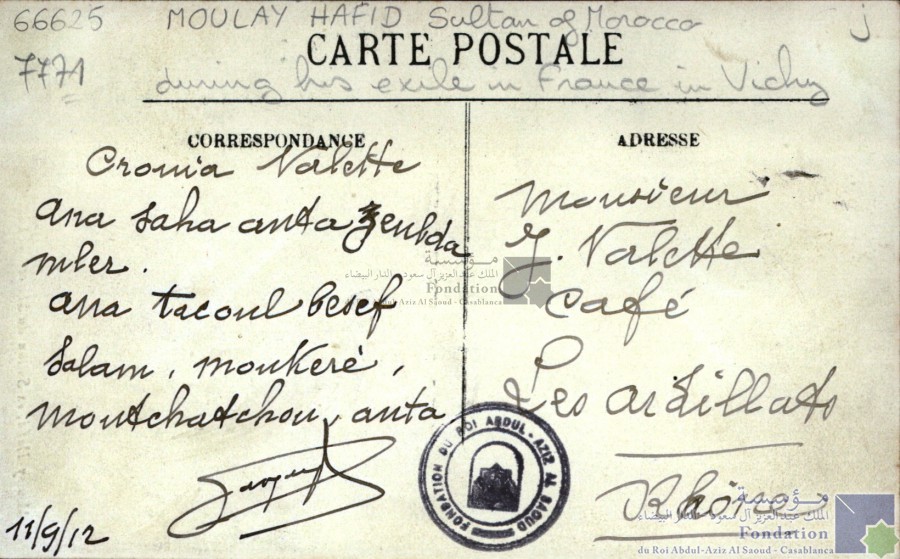 66625 MOULAY HAFID Sultan of Morocco j
CARTE POSTALE
7771 during his exile in France in Vichy
CORRESPONDANCE
Crouia Valette
ana saha anta Zeubda
mler.
ana tacoul besef
Salam, moukere,
moutchatchou, anta
11/9/12
ADRESSE
Monsieur
J. Valette
Café
Les ardillats
Rhône
FONDATION DU ROI ABDUL-AZIZ AL SAOUD
مؤسسة
الملك عبد العزيز آل سعود - الدار البيضاء
Fondation
du Roi Abdul-Aziz Al Saoud - Casablanca
Fondation
du Roi Abdul-Aziz Al Saoud - Casablanca
مؤسسة
الملك عبد العزيز آل سعود - الدار البيضاء
Fondation
du Roi Abdul-Aziz Al Saoud - Casablanca